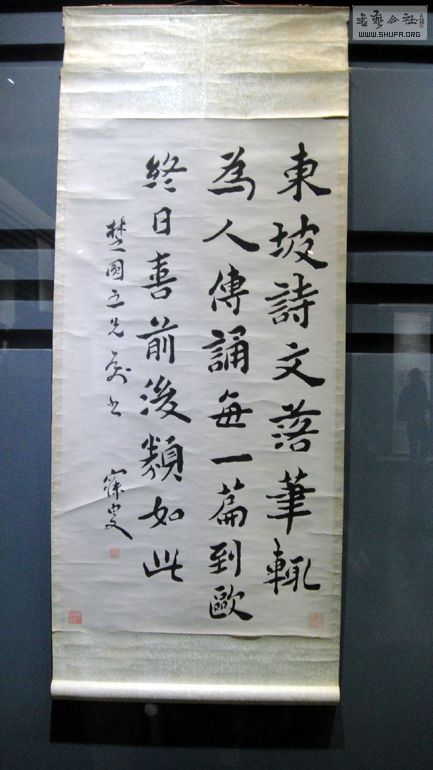 東坡詩文落筆輒
為人傳誦每一篇到歐
終日喜前後類如此
楚國五兄屬書
寐叟
書藝公社
WWW.SHUFA.ORG